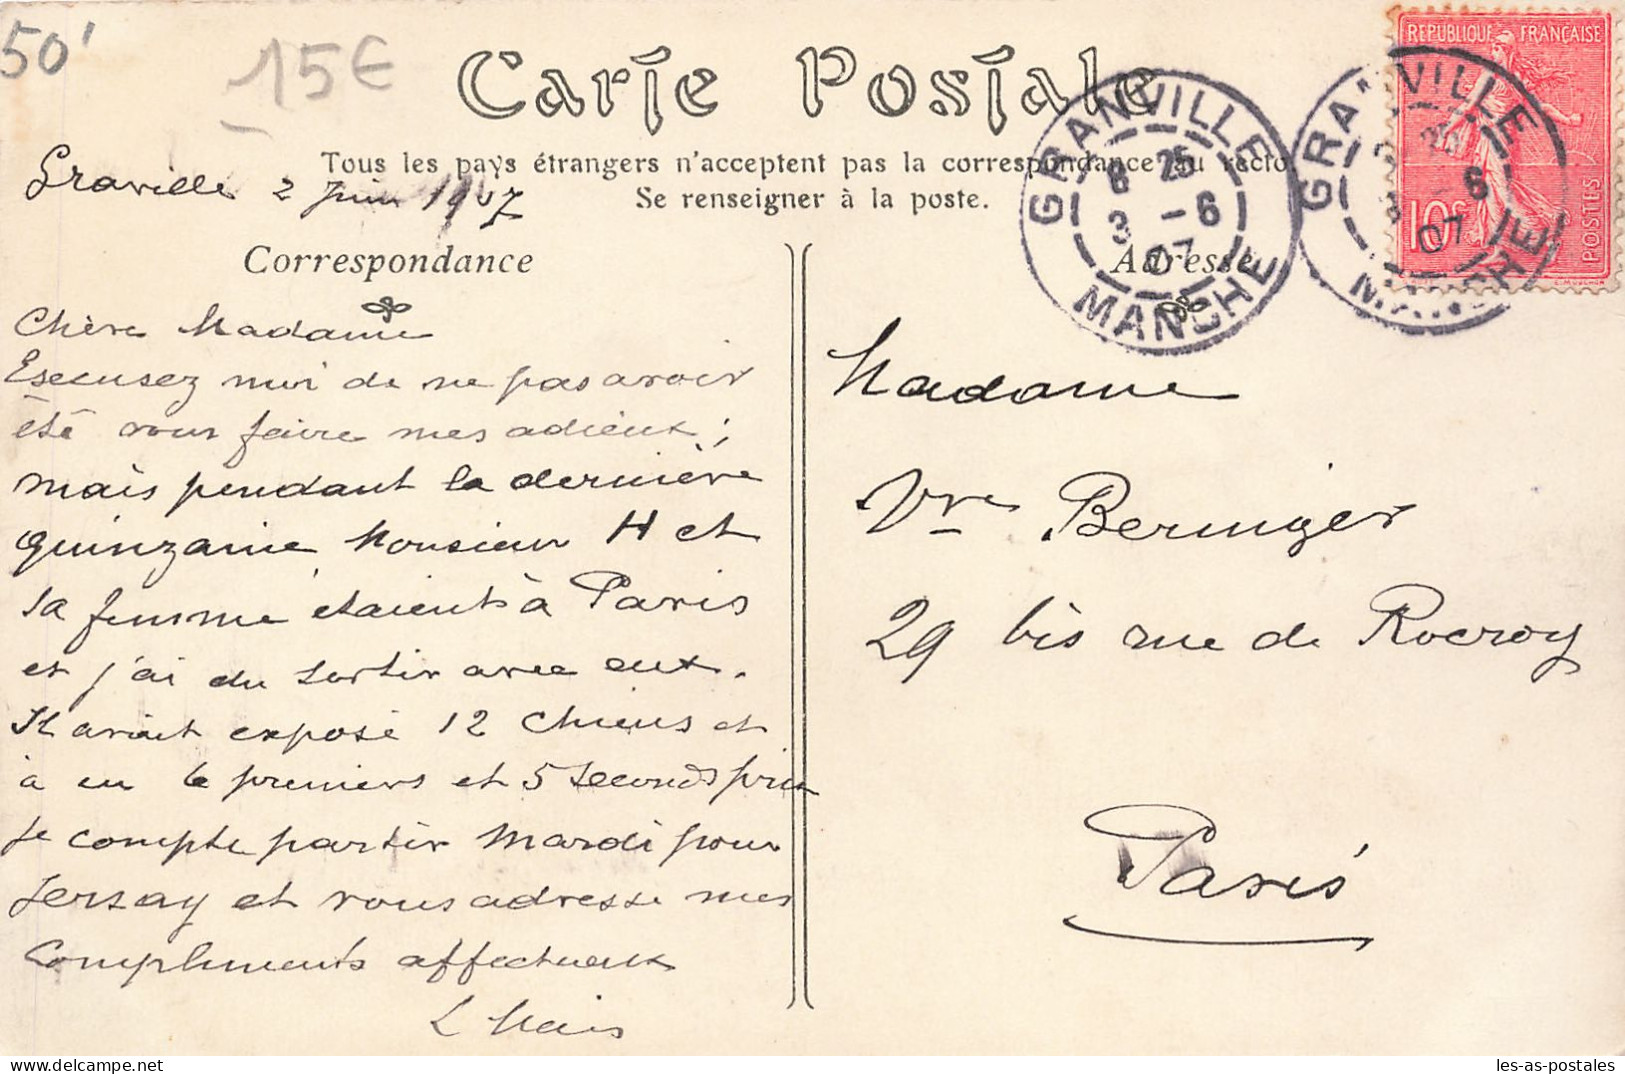 50'
15€
Carte Postale
Tous les pays étrangers n'acceptent pas la correspondance au recto.
Se renseigner à la poste.
Graville 2 Juin 1907
Correspondance
Chère Madame
Esecusez moi de ne pas avoir
été vous faire mes adieux ;
mais pendant la dernière
quinzaine Monsieur H et
sa femme étaient à Paris
et j'ai du sortir avec eux.
Il avait exposé 12 chiens et
à eu 6 premiers et 5 seconds prix
Je compte partir Mardi pour
Jersay et vous adresse mes
Compliments affectueux
L Mais
Adresse
Madame
Vve Beringer
29 bis rue de Rocroy
Paris
GRANVILLE
8 25
3 -6
07
MANCHE
GRANVILLE
25
3 -6
07
MANCHE
REPUBLIQUE FRANÇAISE
10c
POSTES
les-as-postales